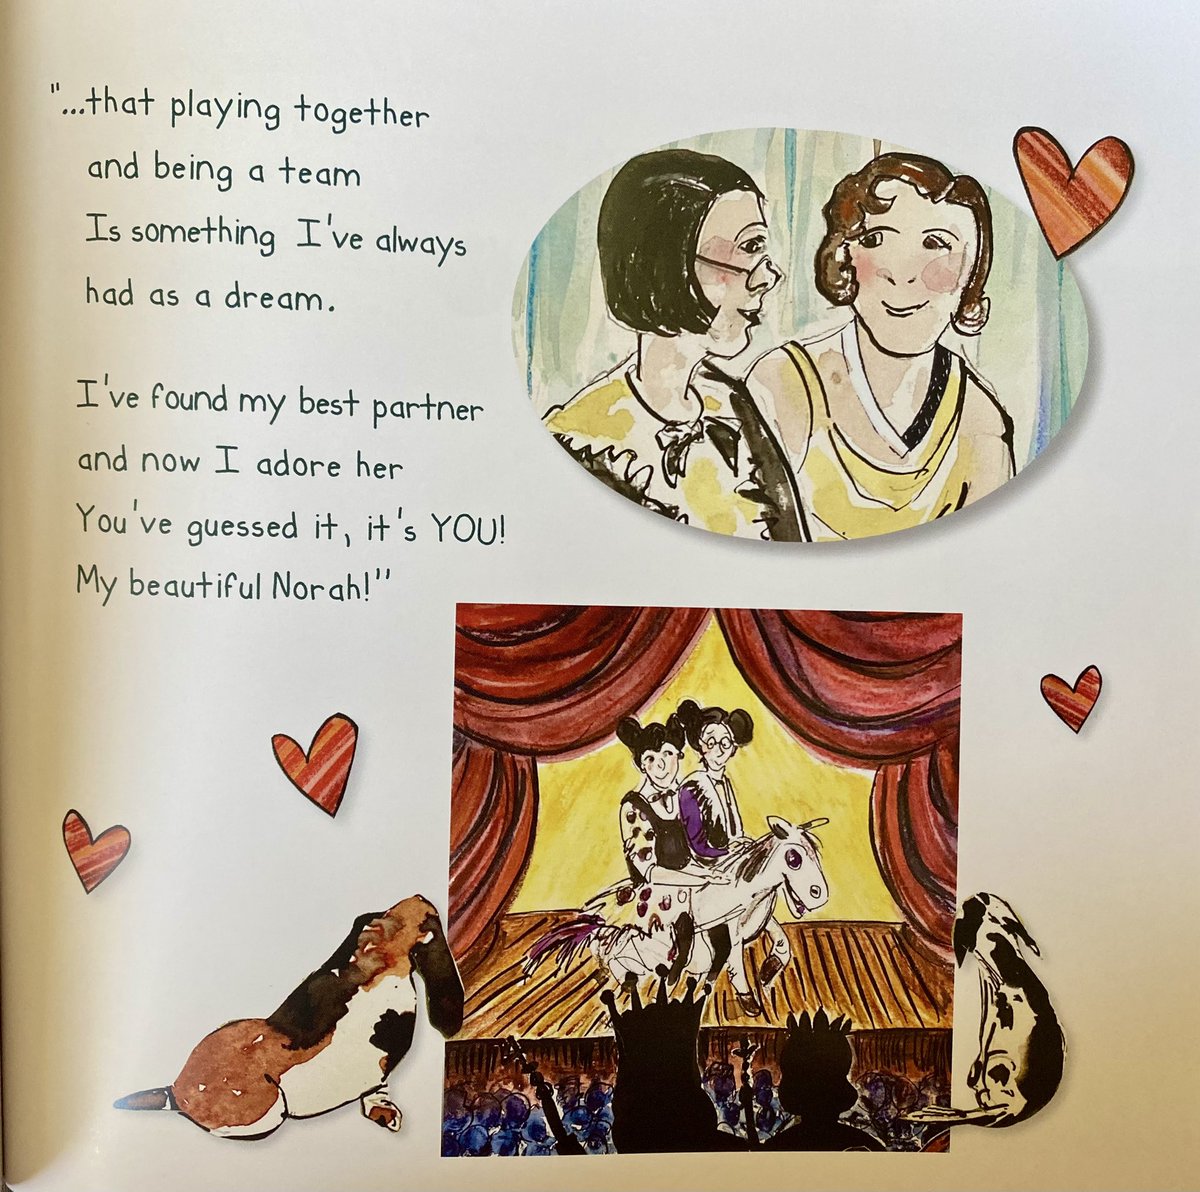 "...that playing together
and being a team
Is something I've always
had as a dream.
I've found my best partner
and now I adore her
You've guessed it, it's YOU!
My beautiful Norah!"